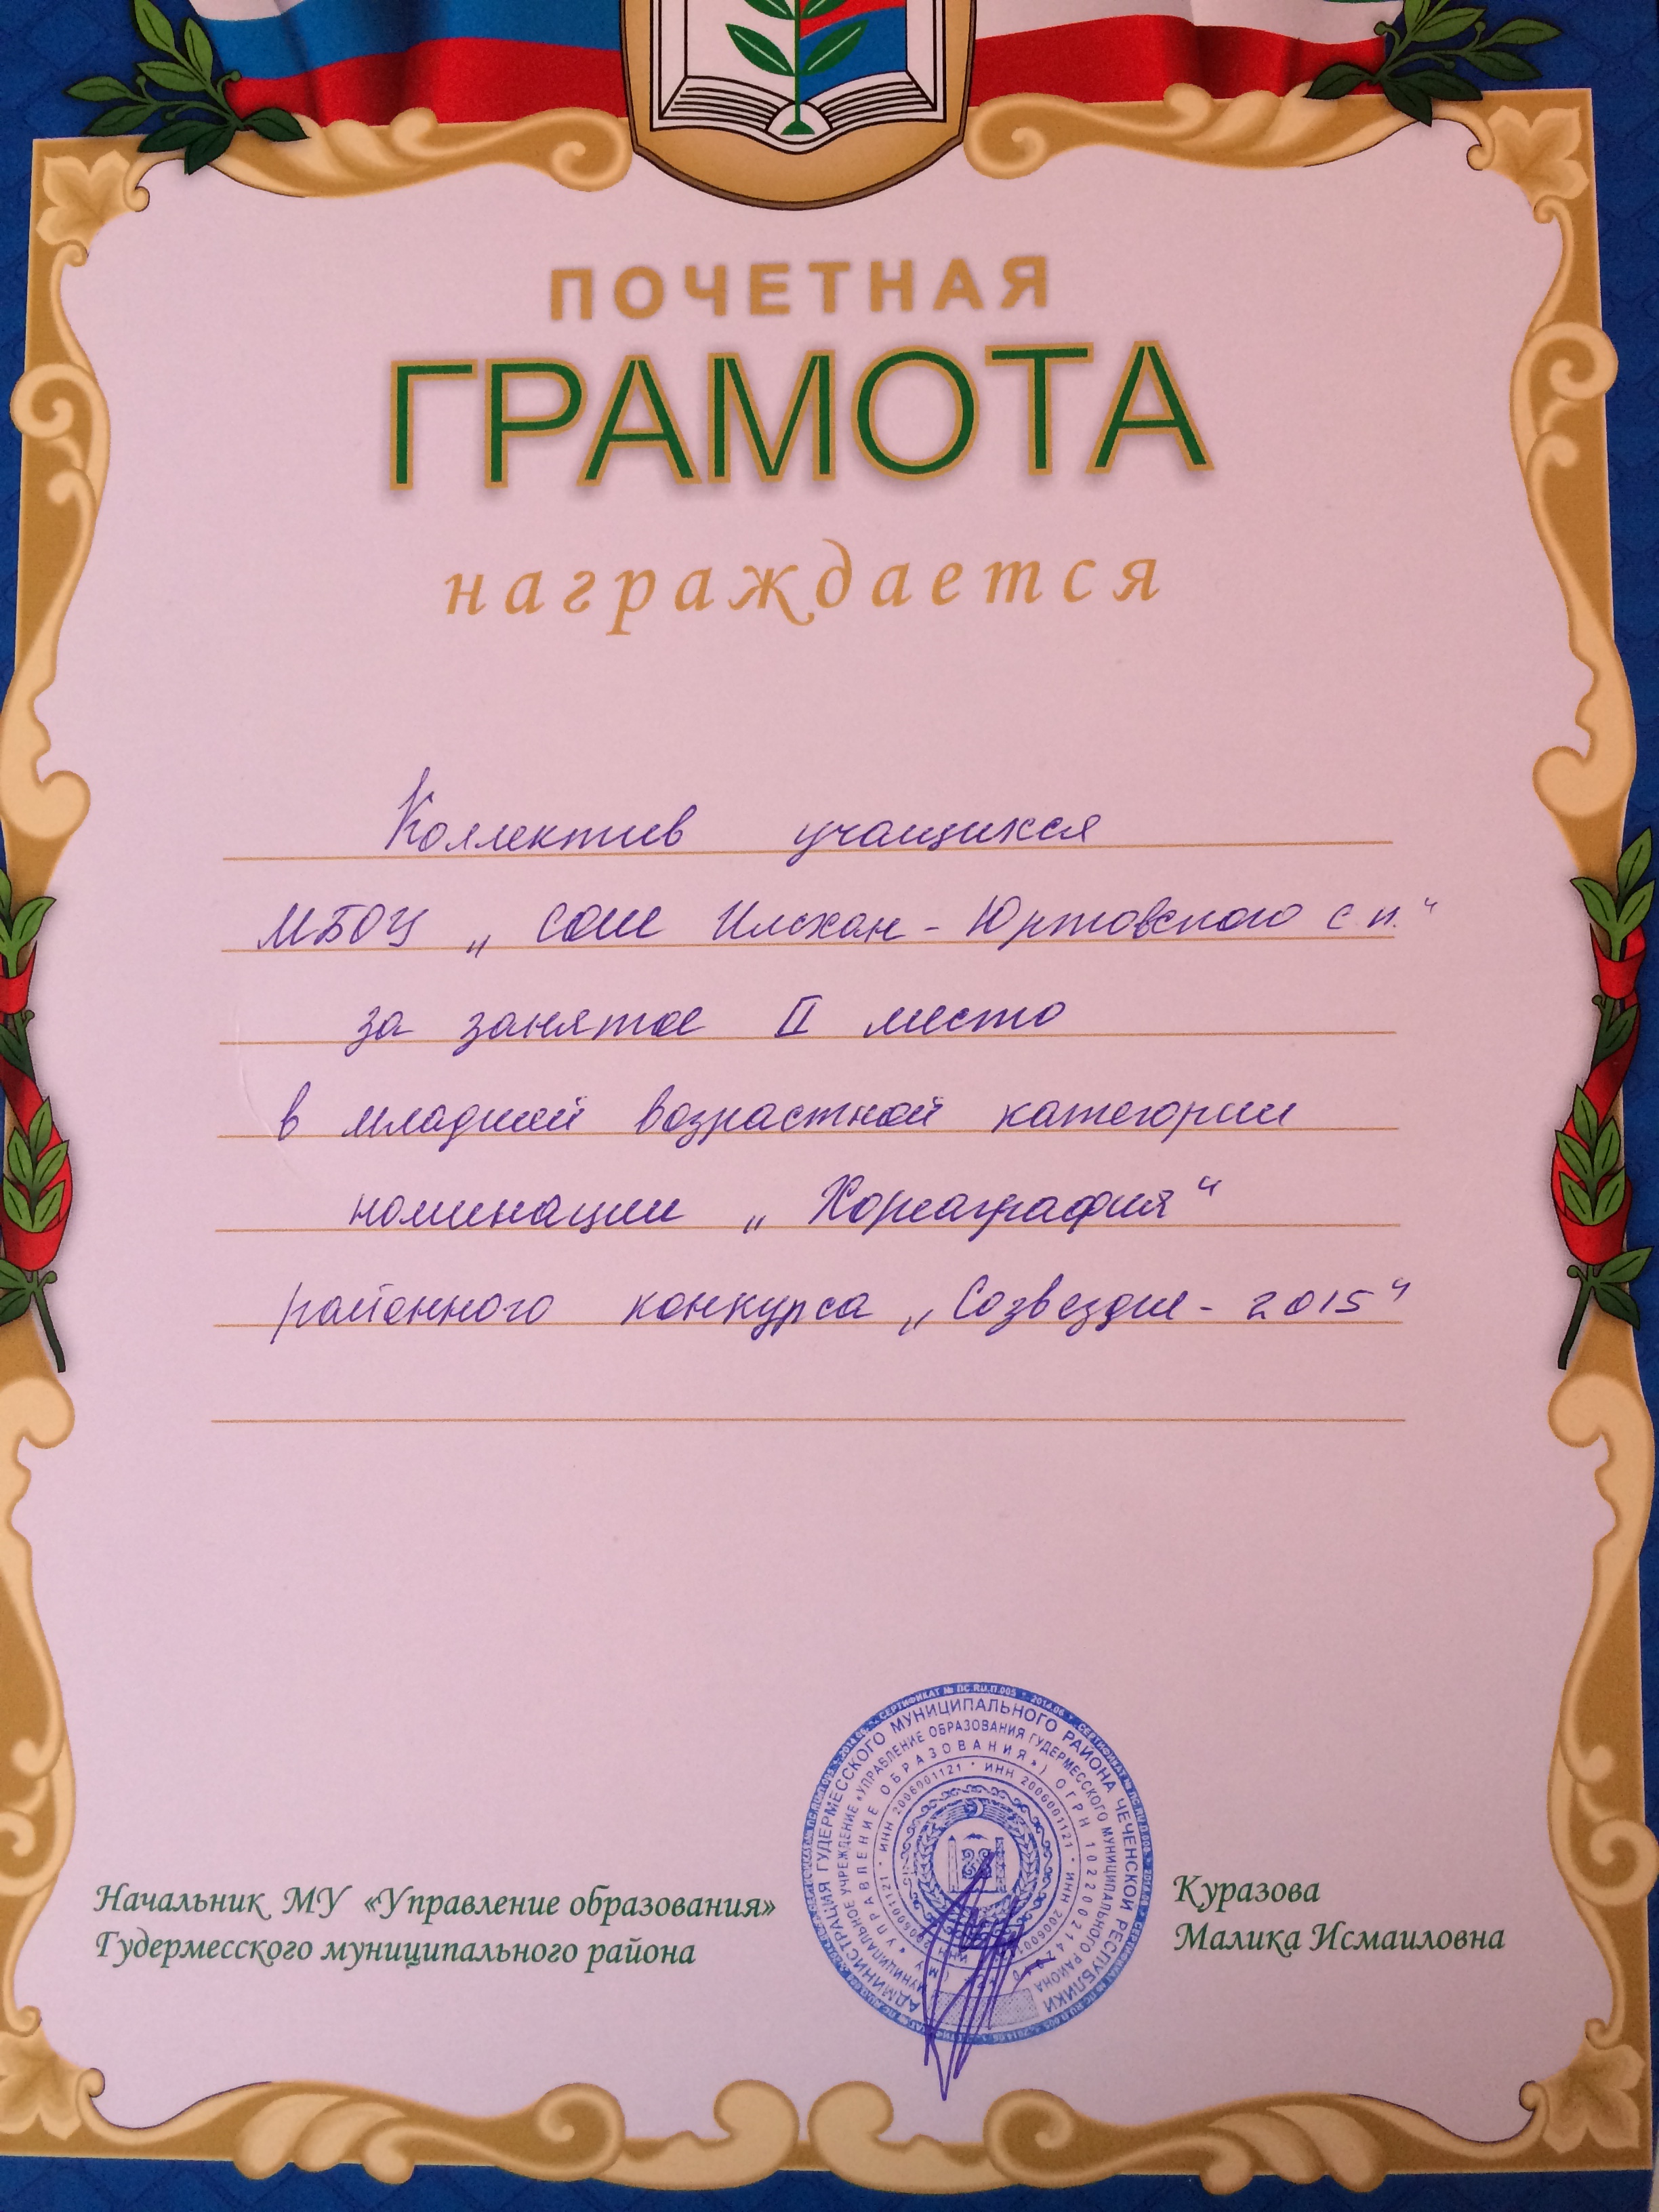 ПОЧЕТНАЯ
ГРАМОТА
награждается
Коллектив учащихся
МБОУ „СОШ Илсхан-Юртовского с.п."
за занятое II место
в младшей возрастной категории
номинации „Хореография"
районного конкурса „Созвездие-2015"
Начальник МУ «Управление образования»
Гудермесского муниципального района
Куразова
Малика Исмаиловна
АДМИНИСТРАЦИЯ ГУДЕРМЕССКОГО МУНИЦИПАЛЬНОГО РАЙОНА ЧЕЧЕНСКОЙ РЕСПУБЛИКИ
МУНИЦИПАЛЬНОЕ УЧРЕЖДЕНИЕ «УПРАВЛЕНИЕ ОБРАЗОВАНИЯ ГУДЕРМЕССКОГО МУНИЦИПАЛЬНОГО РАЙОНА
«УПРАВЛЕНИЕ ОБРАЗОВАНИЯ») ОГРН
ИНН 2006001121 • ИНН 2006001121